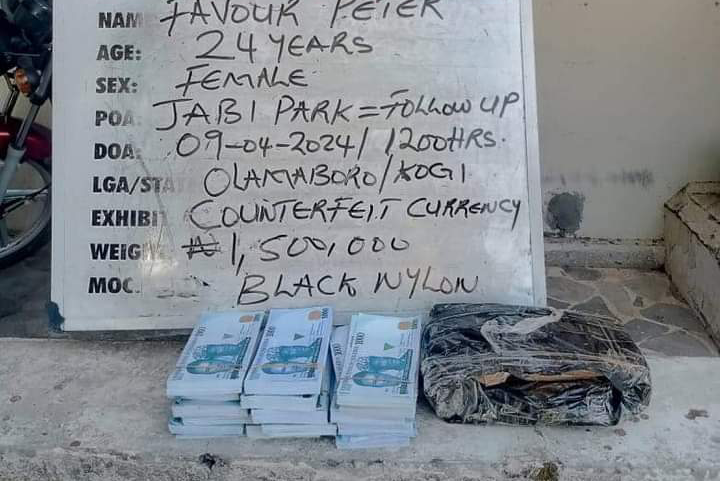 NAM FAVOUR PETER
AGE: 24 YEARS
SEX: FEMALE
POA JABI PARK = FOLLOW UP
DOA: 09-04-2024/ 1200HRS.
LGA/STA OLAMABORO/KOGI
EXHIBI COUNTERFEIT CURRENCY
WEIG ₦1,500,000
MOC. BLACK NYLON
1000 1000 1000